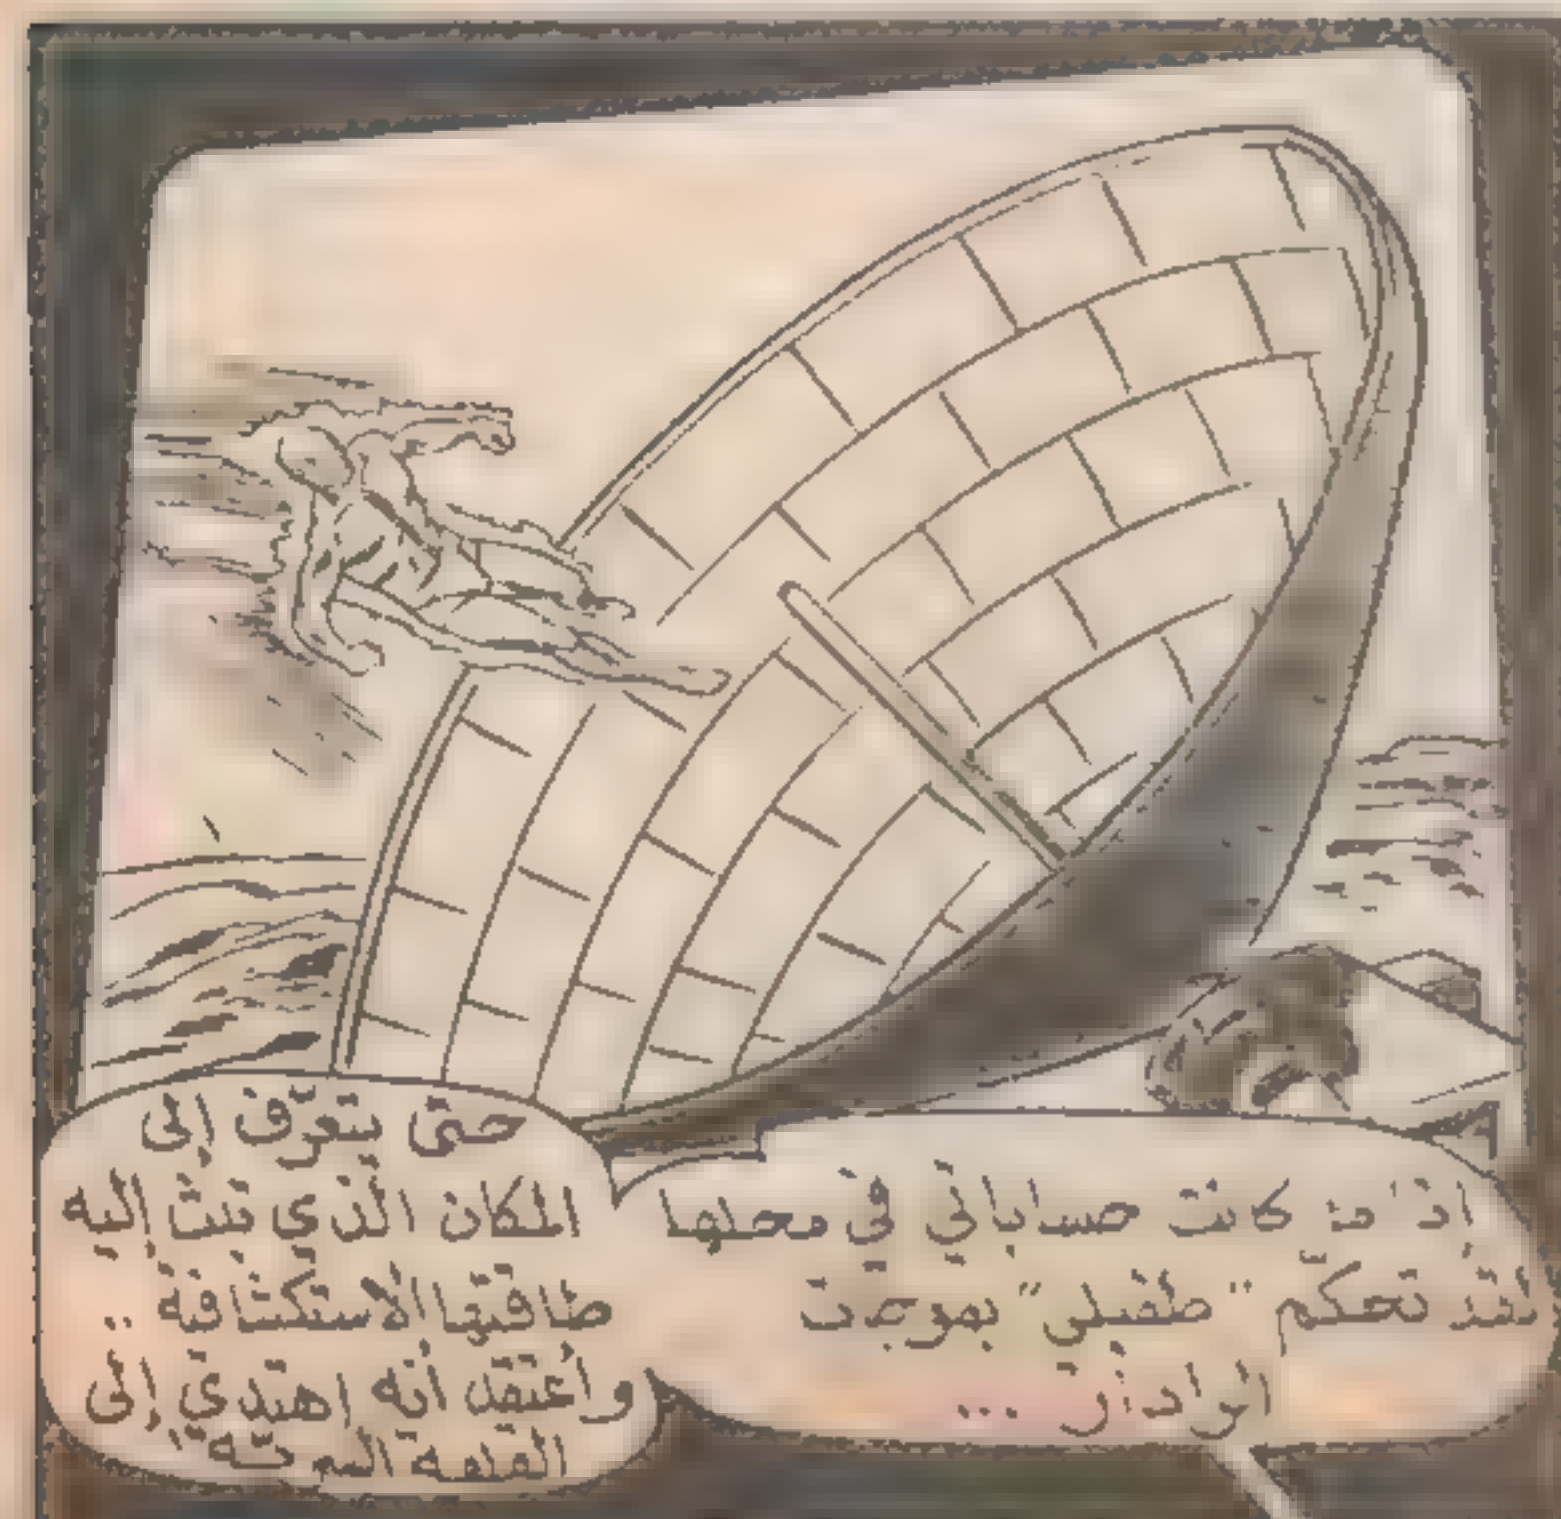 إذا ما كانت حساباتي في محلها
لقد تحكّم "طفيلي" بموجات
الرادار ...
حتى يتعرّف إلى
المكان الذي تبث إليه
طاقتها الاستكشافية ..
وأعتقد أنه اهتدى إلى
القلعة السريّة